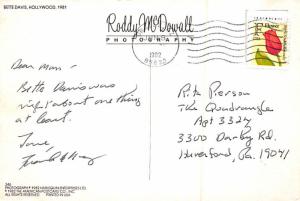 BETTE DAVIS, HOLLYWOOD, 1981
Roddy McDowall
PHOTOGRAPHY
1992
USA
Dear Mom -
Bette Davis was
right about one thing
at least.
Love,
Rita Pierson
The Quadrangle
Apt 3327
3300 Darby Rd.
Haverford, Pa. 19041
346
PHOTOGRAPH © 1982 HARLEQUIN ENTERPRISES LTD.
© 1982 THE AMERICAN POSTCARD CO., INC.
PRINTED IN USA